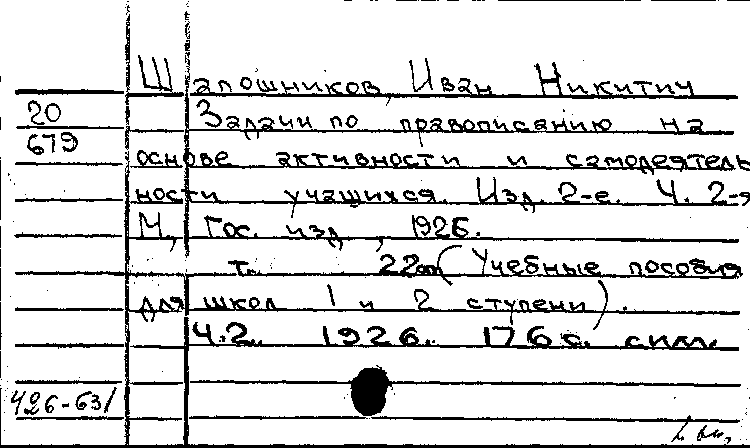 Шапошников, Иван Никитич
20
Задачи по правописанию на
679
основе активности и самодеятель
ности учащихся. Изд. 2-е. Ч. 2-я
М., Гос. изд., 1926.
т. 22 см (Учебные пособия
для школ 1 и 2 ступени).
Ч.2. 1926. 176 с. илл.
426-631